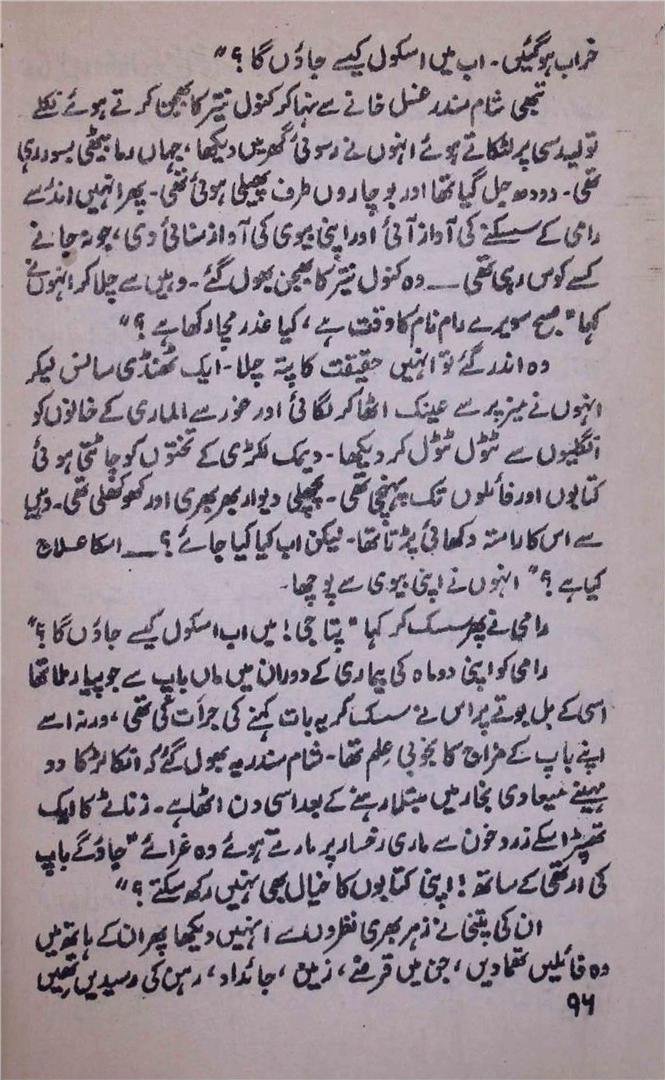 خراب ہوگئیں۔ اب میں اسکول کیسے جاؤں گا؟"
تبھی شام سندر غسل خانے سے نہا کر کنول نیتر کا بھجن کرتے ہوئے نکلے
تولیہ رسی پر لٹکاتے ہوئے انہوں نے رسوئی گھر میں دیکھا، جہاں رما بیٹھی بسور رہی
تھی۔ دودھ جل گیا تھا اور بو چاروں طرف پھیلی ہوئی تھی۔ پھر انہیں اندر سے
رامی کے سسکنے کی آواز آئی اور اپنی بیوی کی آواز سنائی دی، جو نہ جانے
کسے کوس رہی تھی ــ وہ کنول نیتر کا بھجن بھول گئے۔ وہیں سے چلا کر انہوں نے
کہا "صبح سویرے رام نام کا وقت ہے، کیا غدر مچا رکھا ہے؟"
وہ اندر گئے تو انہیں حقیقت کا پتہ چلا۔ ایک ٹھنڈی سانس لیکر
انہوں نے میز پر سے عینک اٹھا کر لگائی اور غور سے الماری کے خانوں کو
انگلیوں سے ٹٹول ٹٹول کر دیکھا۔ دیمک لکڑی کے تختوں کو چاٹتی ہوئی
کتابوں اور فائلوں تک پہنچی تھی۔ پچھلی دیوار بھربھری اور کھوکھلی تھی۔ وہیں
سے اس کا راستہ دکھائی پڑتا تھا۔ لیکن اب کیا کیا جائے؟ ــ اسکا علاج
کیا ہے؟" انہوں نے اپنی بیوی سے پوچھا۔
رامی نے پھر سسک کر کہا "پتا جی! میں اب اسکول کیسے جاؤں گا؟"
رامی کو اپنی دو ماہ کی بیماری کے دوران میں ماں باپ سے جو پیار ملا تھا
اسی کے بل بوتے پر اس نے سسک کر یہ بات کہنے کی جرأت کی تھی، ورنہ اسے
اپنے باپ کے مزاج کا بخوبی علم تھا۔ شام سندر یہ بھول گئے کہ انکا لڑکا دو
مہینے میعادی بخار میں مبتلا رہنے کے بعد اسی دن اٹھا ہے۔ زناٹے کا ایک
تھپڑ اسکے زرد خون سے عاری رخسار پر مارتے ہوئے وہ غرائے "جاؤ گے باپ
کی ارتھی کے ساتھ! اپنی کتابوں کا خیال بھی نہیں رکھ سکتے؟"
ان کی پتنی نے زہر بھری نظروں سے انہیں دیکھا پھر ان کے ہاتھ میں
وہ فائلیں تھما دیں، جن میں قرضے، زمین، جائداد، رہن کی رسیدیں تھیں
۹۶